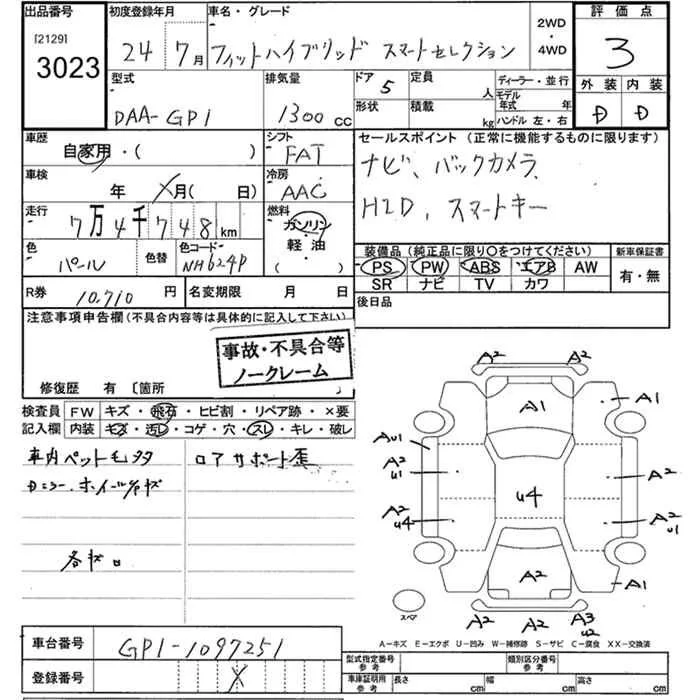 出品番号 初度登録年月 車名・グレード 2WD ・ 4WD 評価点
[2129]
3023 24年 7月 フィットハイブリッド スマートセレクション 3
型式 排気量 ドア 5 定員 人 ディーラー・並行 外装 内装
DAA-GP1 1300cc 形状 積載 kg モデル年式 年 D D
ハンドル 左・右
車歴 自家用・( ) シフト FAT セールスポイント (正常に機能するものに限ります)
車検 年 X月(日) 冷房 AAC ナビ、バックカメラ、
走行 7万4千748km 燃料 ガソリン HID、スマートキー
軽・油
( )
色 パール 色替 色コード NH624P 装備品 (純正品に限り○をつけてください) 新車保証書
PS PW ABS エアB AW 有・無
SR ナビ TV カワ
R券 10,710円 名変期限 月 日 後日品
注意事項申告欄 (不具合内容等は具体的に記入して下さい)
事故・不具合等
ノークレーム
修復歴 有 〔箇所 〕
検査員 FW キズ・飛石・ヒビ割・リペア跡・×要
記入欄 内装 キズ・汚レ・コゲ・穴・スレ・キレ・破レ
車内ペット毛多 ロアサポート歪
ホイールキズ
各キズ
A2 A2
A1 A1
AU1
A2 A2
U1
U4
A2 A2
U4 U1
A2 A1
スペア
A2 A2 A3
U2
A-キズ E-エクボ U-凹み W-補修跡 S-サビ C-腐食 XX-交換済
車台番号 GP1-1097251
登録番号 X
型式指定番号 参考 類別区分番号 参考
車庫証明用 参考 長さ cm 幅 cm 高さ cm